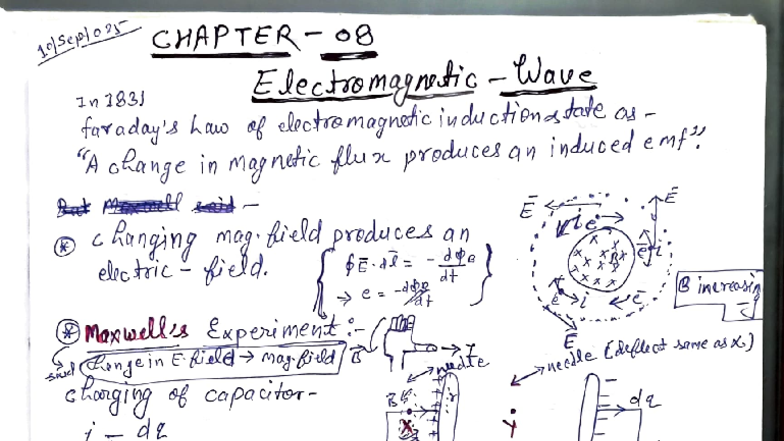 10/Sep/025
CHAPTER - 08
Electromagnetic - Wave
In 1831
faraday's Law of electromagnetic induction state as -
"A change in magnetic flux produces an induced emf".
But Maxwell said -
* changing mag. field produces an
electric - field.
∮Ē·dl̄ = - dφB/dt
⇒ e = -dφB/dt
Ē
Ē
B increasing
Ē
* Maxwell's Experiment :-
said Change in E-field → mag. field
B
I
needle
needle (deflect same as x.)
charging of capacitor -
i = dq
B
x
r
y
dq